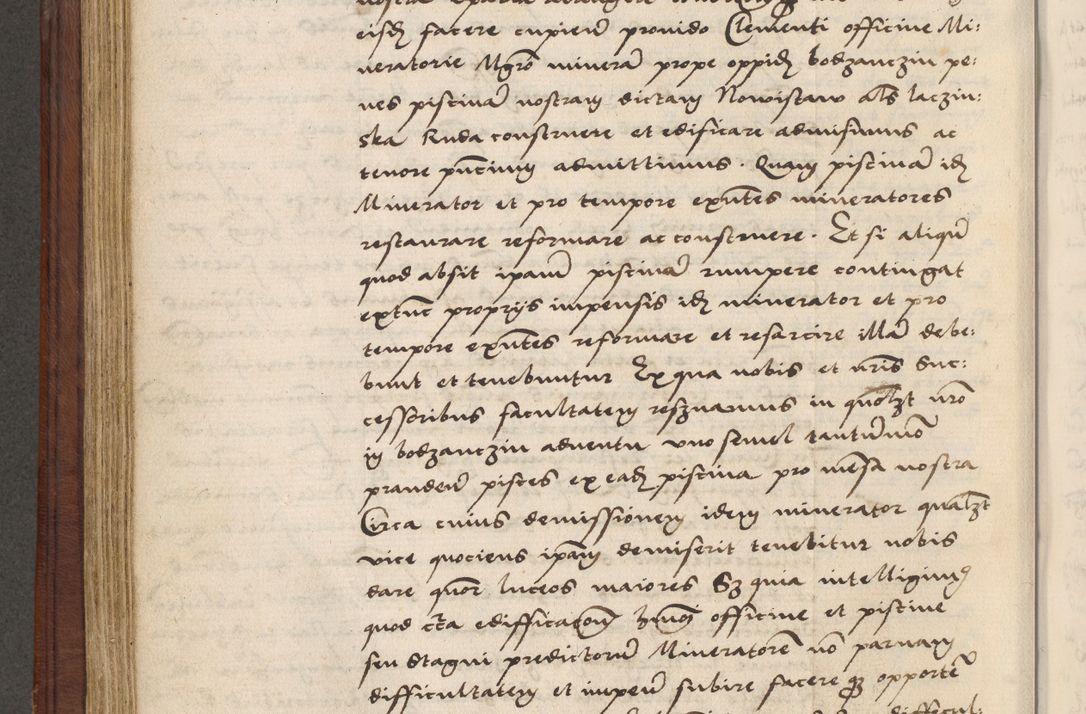 eisdē facere cupien̄ provido Clementi officine Mi:
neratorie Mgrō minerar̄ prope oppidū bodzanczin pe:
nes piscinā nostram dictam Nowistaw als laczin:
ska Ruda construere et edificare admisimus ac
tenore pn̄cium admittimus. Quam piscinā idē
Minerator et pro tempore exn̄tes mineratores
restaurare reformare ac construere. Et si aliqn̄
quod absit ipam̄ piscinā rumpere contingat
extunc proprijs impensis idē minerator et pro
tempore exn̄tes reformare et resarcire illā debe:
bunt et tenebuntur Ex qua nobis et nr̄is suc:
cessoribus facultatem reszuamus in quolzt nr̄o
in bodzanczin adventu uno semel tantūmō
prandeū pisces ex eadē piscina pro mensa nostra
Circa cuius demissionem idem minerator qualzt
vice quociens ipām demiserit tenebitur nobis
dare quor̄ luceos maiores Sz quia intelligimꝰ
quod cīta edifficacōnē hm̄oi officine et piscine
seu stagni predictorū Mineratorē nō parvam
difficultatem et impen̄ subire facere qz opportē